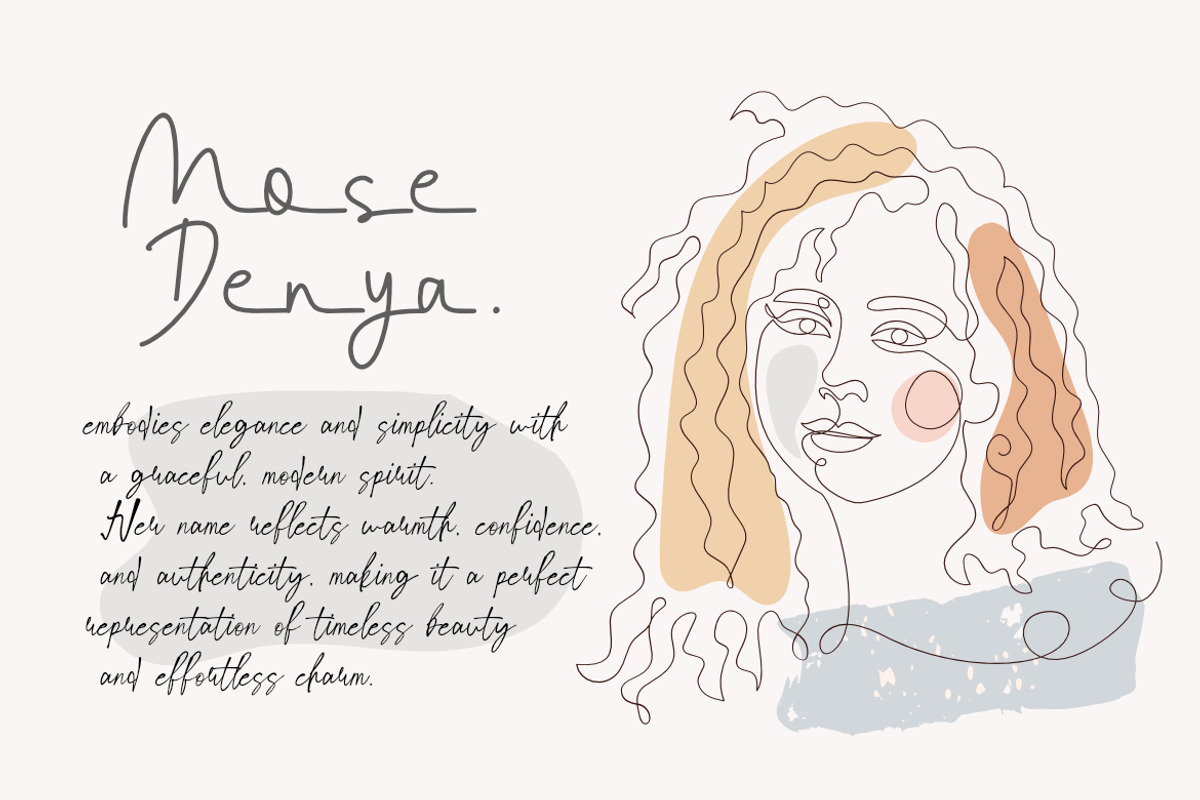 Mose
Denya.
embodies elegance and simplicity with
a graceful, modern spirit.
Her name reflects warmth, confidence,
and authenticity, making it a perfect
representation of timeless beauty
and effortless charm.